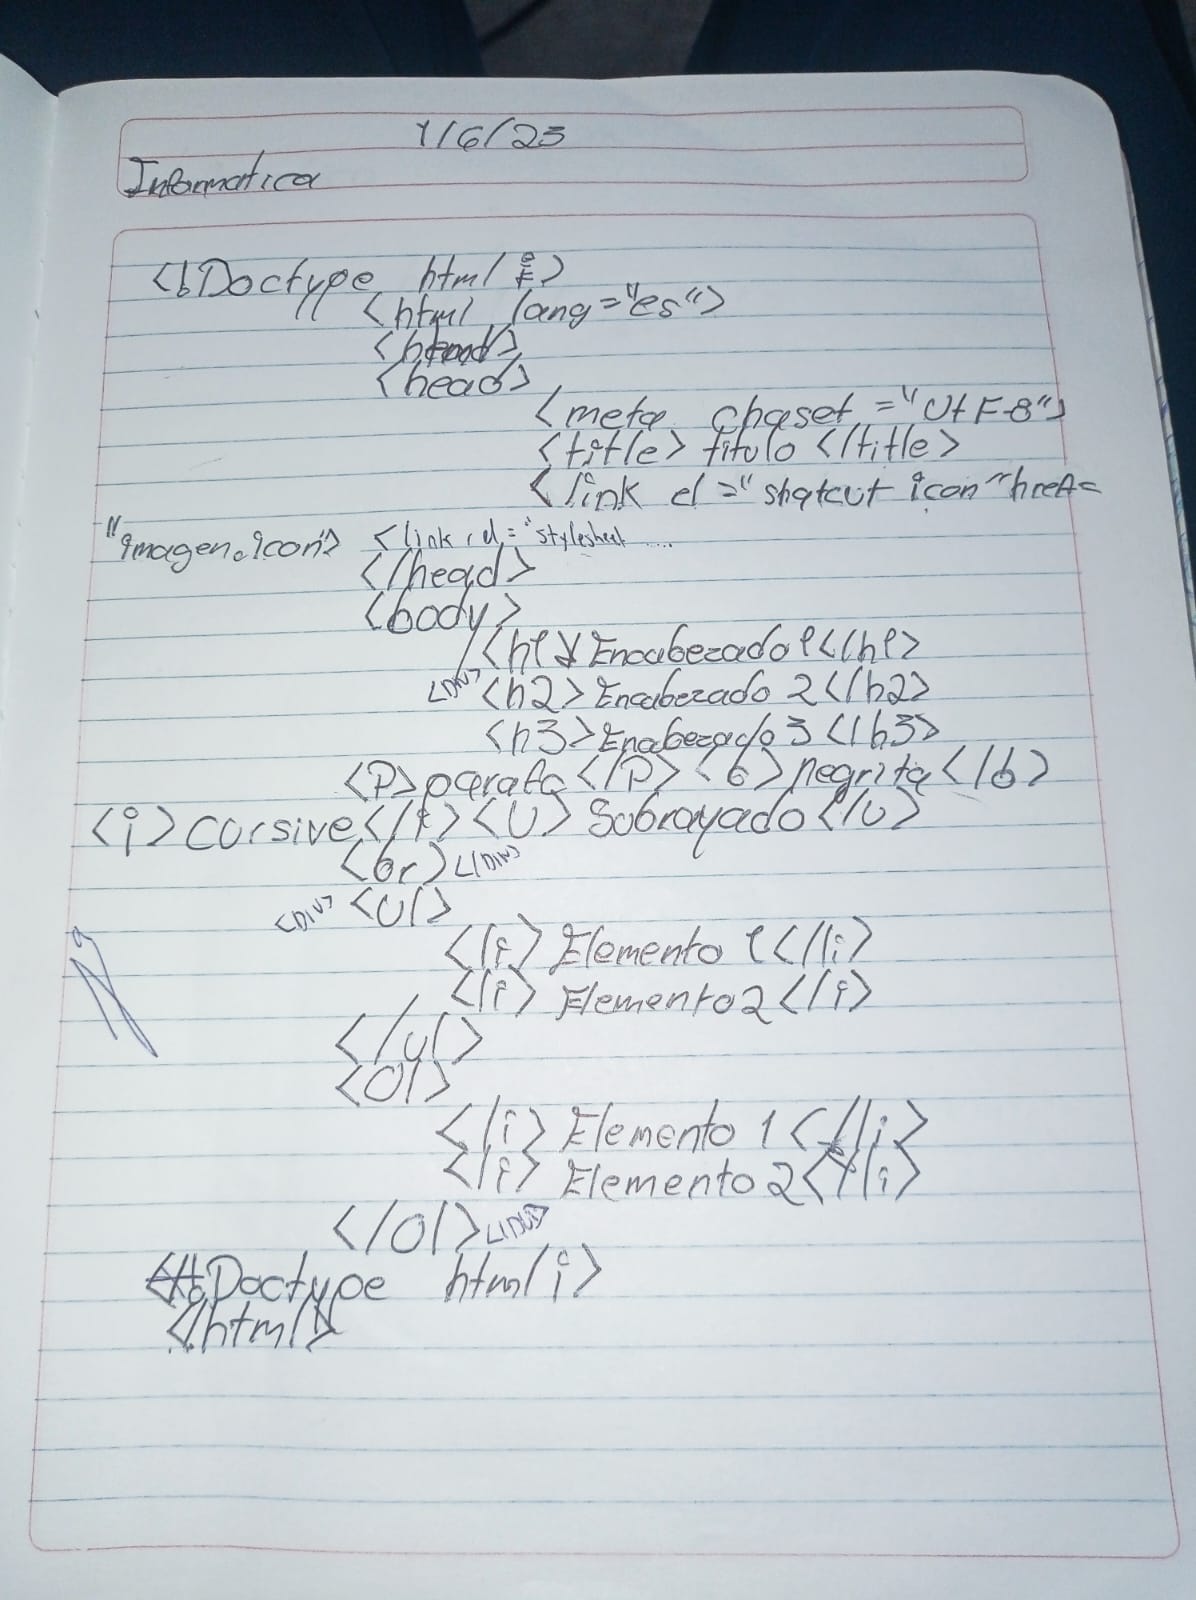 1/6/23
Informatica
<!Doctype html>
<html lang="es">
<head>
<meta chaset="UtF-8">
<title> titulo </title>
<link el="shatcut icon" href=
"imagen.icon"> <link rel="stylesheet ....
</head>
<body>
<h1> Encabezado 1</h1>
<DIV> <h2> Encabezado 2</h2>
<h3> Encabezado 3</h3>
<P> parafo </P> <b> negrita </b>
<i> cursive </i> <U> Subrayado </U>
<br> </DIV>
<DIV> <Ul>
<li> Elemento 1</li>
<li> Elemento 2</li>
</ul>
<Ol>
<li> Elemento 1</li>
<li> Elemento 2</li>
</Ol> </DIV>
Doctype html¡>
</html>